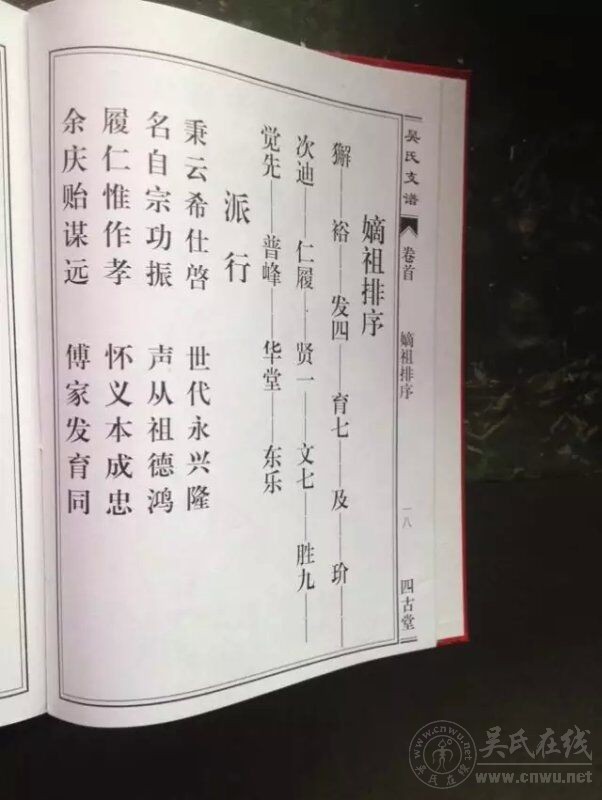 吴氏支谱
卷首
嫡祖排序
一八
四古堂
嫡祖排序
獬——裕——发四——育七——及——玠——
次迪——仁履——贤一——文七——胜九——
觉先——普峰——华堂——东乐
派行
秉云希仕啓 世代永兴隆
名自宗功振 声从祖德鸿
履仁惟作孝 怀义本成忠
余庆贻谋远 傅家发育同
吴氏在线
www.cnwu.net